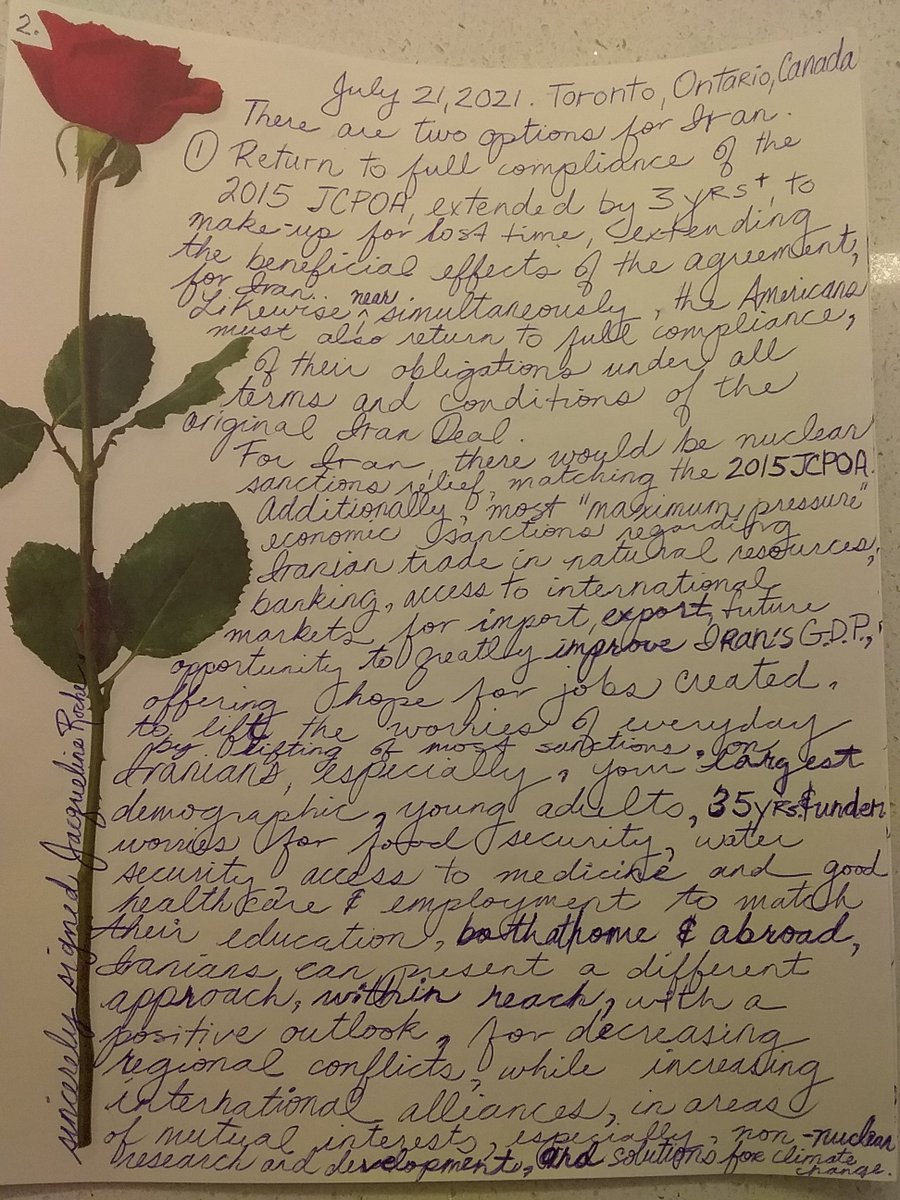 2.
July 21, 2021. Toronto, Ontario, Canada
There are two options for Iran.
① Return to full compliance of the
2015 JCPOA, extended by 3 yrs+, to
make-up for lost time, extending
the beneficial effects of the agreement,
for Iran.
Likewise near simultaneously, the Americans
must also return to full compliance,
of their obligations under all
terms and conditions of the
original Iran Deal.
For Iran, there would be nuclear
sanctions relief, matching the 2015 JCPOA.
Additionally, most "maximum pressure"
economic sanctions regarding
Iranian trade in natural resources,
banking, access to international
markets, for import, export, future
opportunity to greatly improve IRAN'S G.D.P.,
offering hope for jobs created.
to lift the worries of everyday
by lifting of most sanctions on
Iranians, especially, your largest
demographic, young adults, 35 yrs. & under.
worries for food security, water
security, access to medicine and good
healthcare & employment to match
their education, both at home & abroad,
Iranians can present a different
approach, within reach, with a
positive outlook, for decreasing
regional conflicts, while increasing
international alliances, in areas
of mutual interests, especially, non-nuclear
research and development, and solutions for climate
change.
sincerely signed Jacqueline Roche